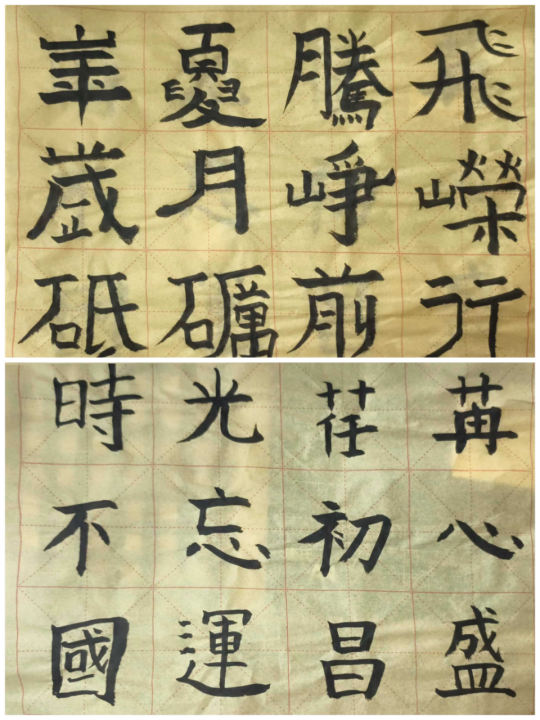 崋夓騰飛
歲月崢嶸
砥礪前行
時光荏苒
不忘初心
國運昌盛